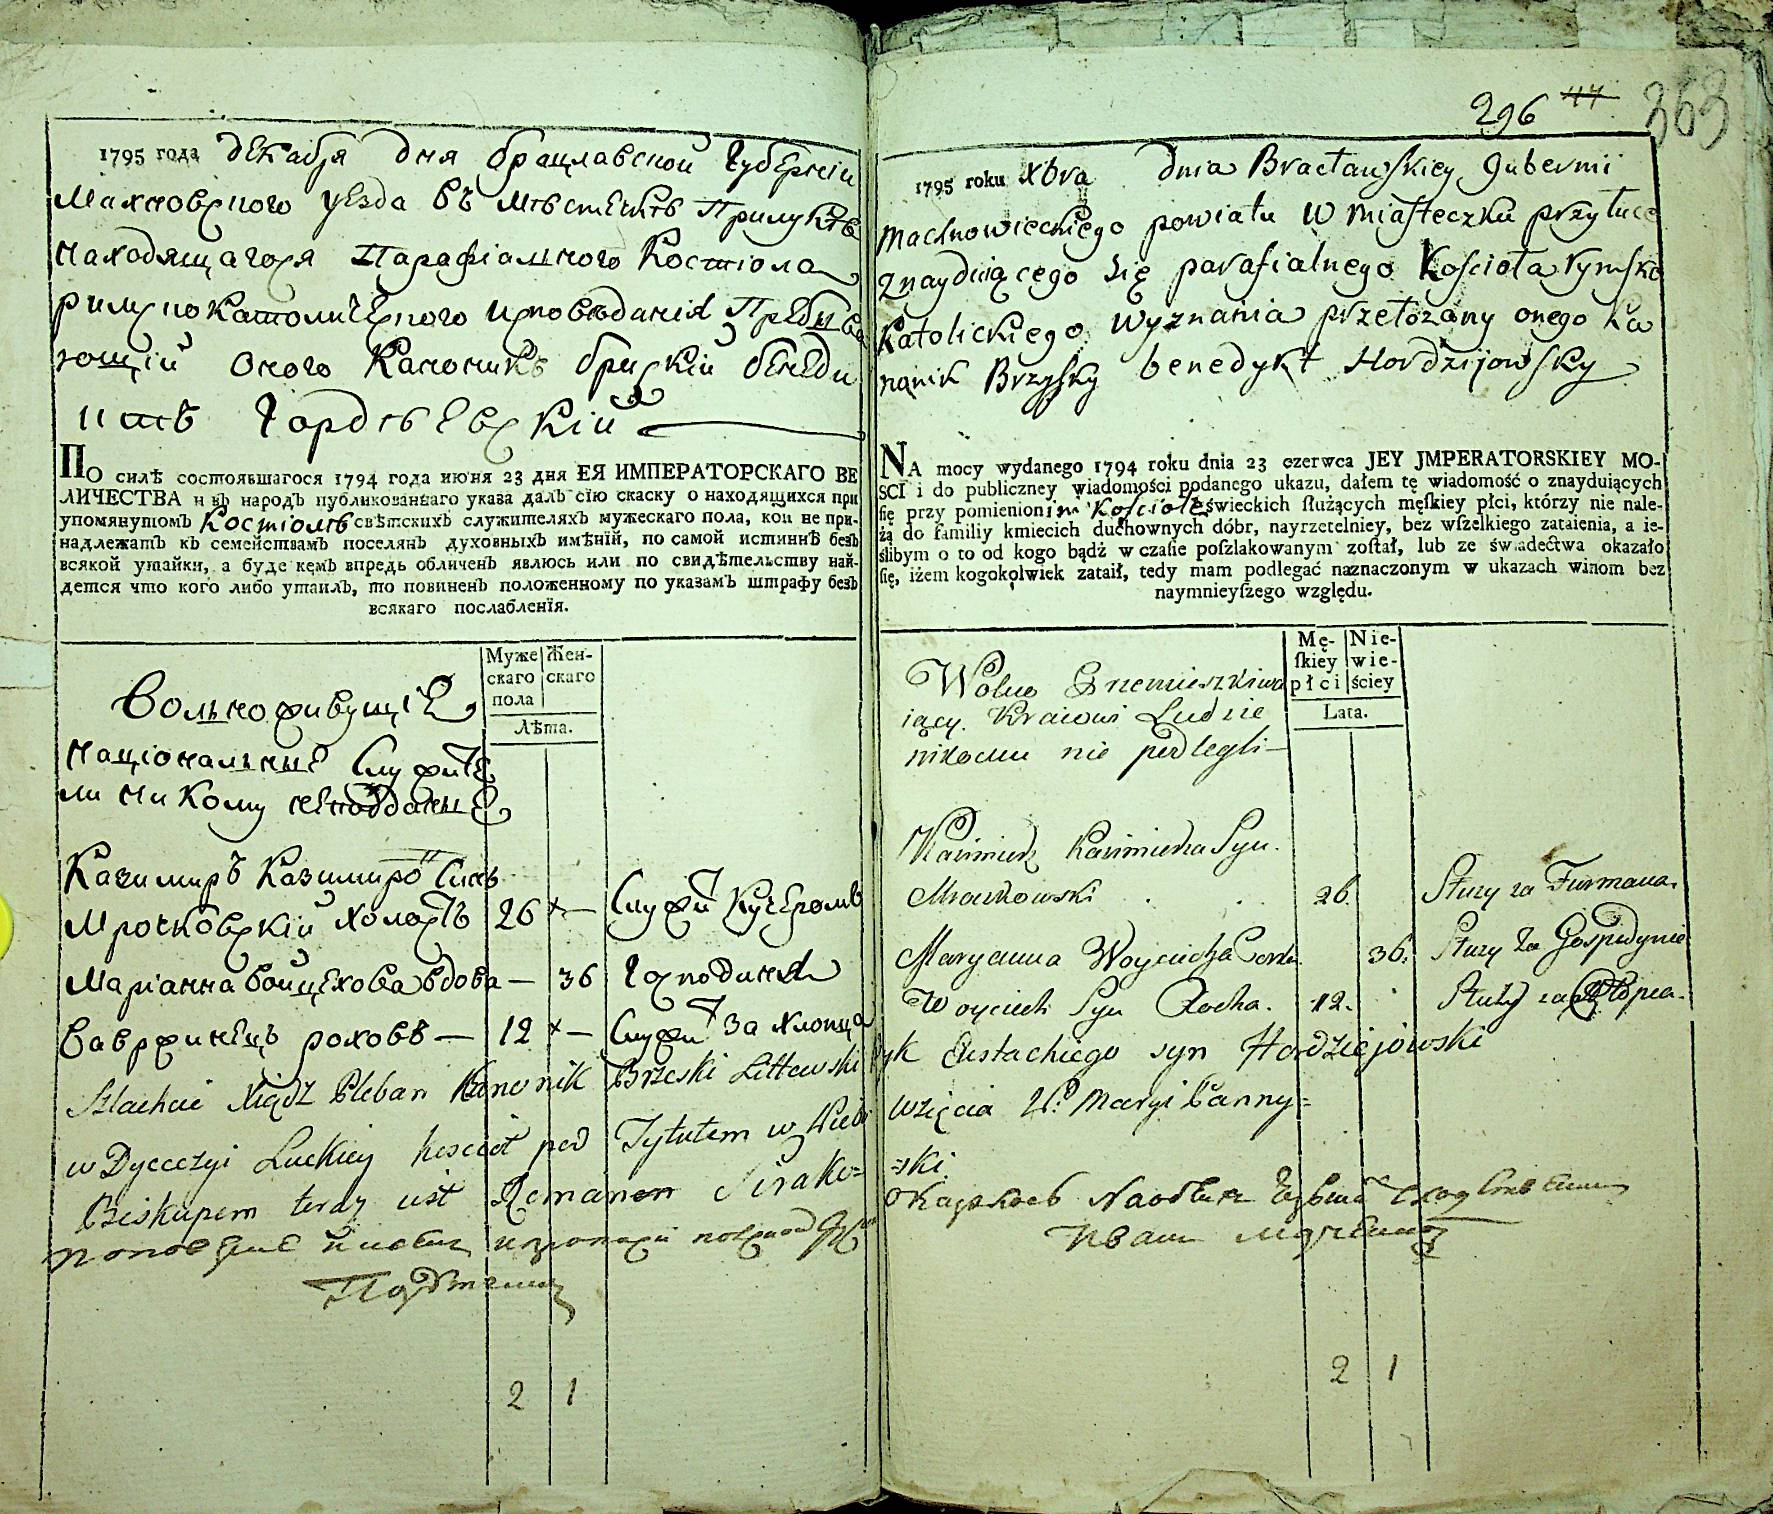 1795 года Декабря дня брацлавской Губернiи
Махновского уезда въ мѣстечкѣ Прилукѣ
находящагося Парафiального Костiола
римскокатолического исповѣданiя Пребыва
ющiй оного Каноникъ брискiй бенеди
иктъ Гордѣевскiй
ПО силѣ состоявшагося 1794 года июня 23 дня ЕЯ ИМПЕРАТОРСКАГО ВЕ
ЛИЧЕСТВА и въ народъ публикованнаго указа далъ сїю скаску о находящихся при
упомянутомъ Костiолѣ свѣтскихъ служителяхъ мужескаго пола, кои не при-
надлежатъ къ семействамъ поселянъ духовныхъ имѣнїй, по самой истиннѣ безъ
всякой утайки, а буде кемъ впредь обличенъ явлюсь или по свидѣтельству най-
дется что кого либо утаилъ, то повиненъ положенному по указамъ штрафу безъ
всякаго послабленїя.
Муже Жен-
скаго скаго
пола
Лѣта.
Вольноживущiе
Нацiональные Служите
ли никому неподданые
Казимиръ Казимиро Синъ
Мрочковскiй холостъ 26 х— Служи Кучеромъ
Марiанна Войцехова вдова — 36 Господиня
Вавржинецъ роховъ — 12 х— Служи за хлопца
Szlachcic Xiądz Pleban Kanonik Brzeski Littewski
w Dyecezyi Luckiey kosciół pod Tytułem w Niebo
Biskupem teraz iest Roman Sirako=
2 1
296 44 363
1795 roku Xbra dnia Bracławskiey gubernii
Machnowieckiego powiatu w miasteczku przyłuce
znayduiącego się parafialnego Kościoła rymsko
Katolickiego wyznania przełożany onego Ka
nonik Brzyski benedykt Hordzijowsky
NA mocy wydanego 1794 roku dnia 23 czerwca JEY JMPERATORSKIEY MO-
SCI i do publiczney wiadomości podanego ukazu, dałem tę wiadomość o znayduiących
ſię przy pomienionim Kościolé świeckich ſłużących męſkiey płci, którzy nie nale-
żą do familiy kmiecich duchownych dóbr, nayrzetelniey, bez wſzelkiego zataienia, a ie-
ślibym o to od kogo bądź w czaſie poſzlakowanym zoſtał, lub ze świadectwa okazało
ſię, iżem kogokolwiek zataił, tedy mam podlegać naznaczonym w ukazach winom bez
naymnieyſzego względu.
Mę- Nie-
ſkiey wie-
płci ściey
Lata.
Wolno
iący Kraiowi Ludzie
nikomu nie podlegli—
Kazimierz Kazimierza Syn.
Mroczkowski . . 26. Służy za Furmana.
Maryanna Woyciecha 36. Służy za Gospodynie
Woyciech Syn Rocha. 12. Służy za Chłopca.
yk Eustachiego syn Hordziejowski
wzięcia N. Maryi Panny=
=ski
2 1